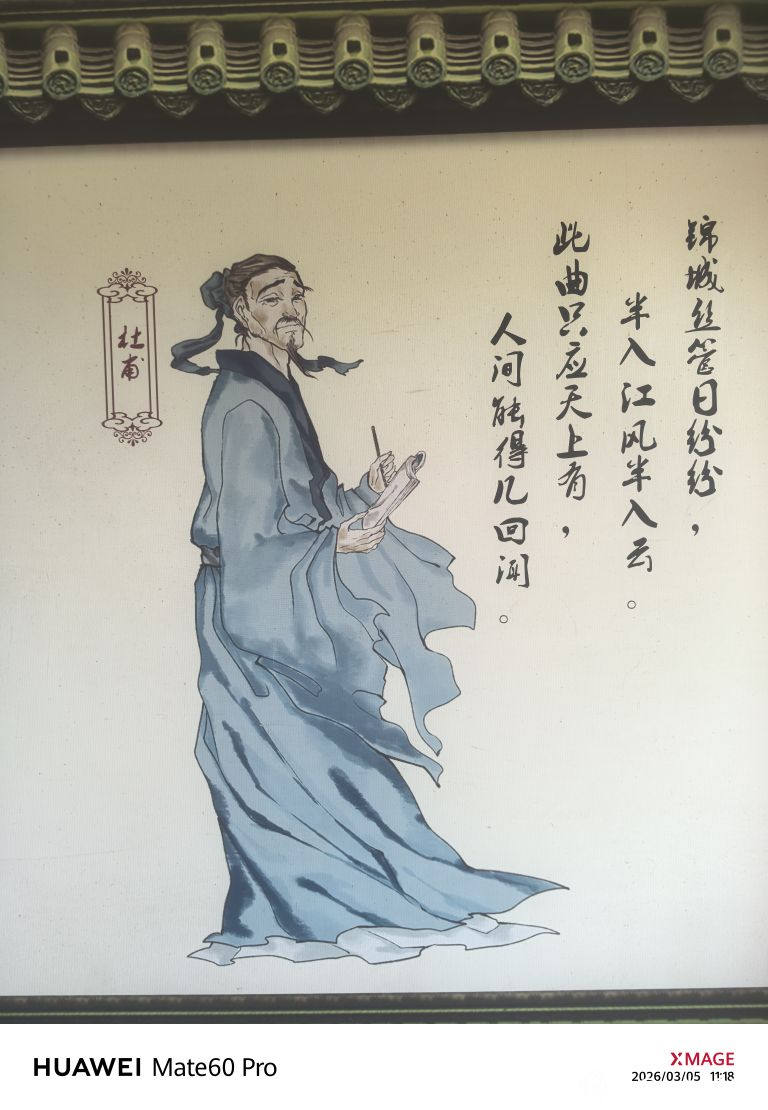 锦城丝管日纷纷，
半入江风半入云。
此曲只应天上有，
人间能得几回闻。
杜甫
HUAWEI Mate60 Pro
XMAGE
2026/03/05 11:18